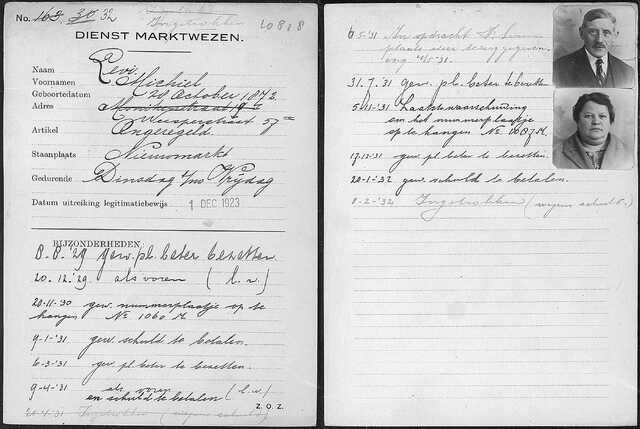 No. 163. 30. 32
Ingetrokken
L 0818
DIENST MARKTWEZEN.
Naam Levi
Voornamen Michiel
Geboortedatum 24 October 1872
Adres
Weesperstraat 57
Artikel Ongeregeld.
Staanplaats Nieuwmarkt
Gedurende Dinsdag t/m Vrijdag
Datum uitreiking legitimatiebewijs 1 DEC 1923
BIJZONDERHEDEN
8-8-'29 gew. pl. beter bezetten
20.12.'29. als voren (l.w.)
20-11-30 gew. nummerplaatje op te
hangen No 1060 M.
9-1-'31 gew. schuld te betalen.
6-3-'31 gew. pl. beter te bezetten.
9-4-'31 als voren
en schuld te betalen (l.w.)
Z. O. Z.
20.4.'31 Ingetrokken (wegens schuld)
6/5-'31 In opdracht
plaats weer teruggegeven
31.7.'31 gew. pl. beter te bezetten
5-11-'31 Laatste waarschuwing
om het nummerplaatje
op te hangen No 1087 M.
17-12-31 gew. pl. beter te bezetten.
20-1-'32 gew. schuld te betalen.
8-2-'32 Ingetrokken (wegens schuld).